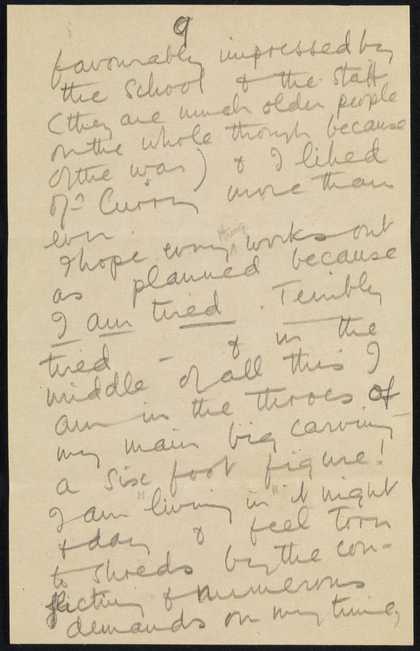 9
favourably impressed by
the School & the staff
(they are much older people
on the whole though because
of the war) & I liked
Mr Curry more than
ever.
I hope every thing works out
as planned because
I am tired. Terribly
tired — & in the
middle of all this I
am in the throes of
my main big carving —
a six foot figure!
I am "living in" it night
& day & feel torn
to shreds by the con-
flicting & numerous
demands on my time,